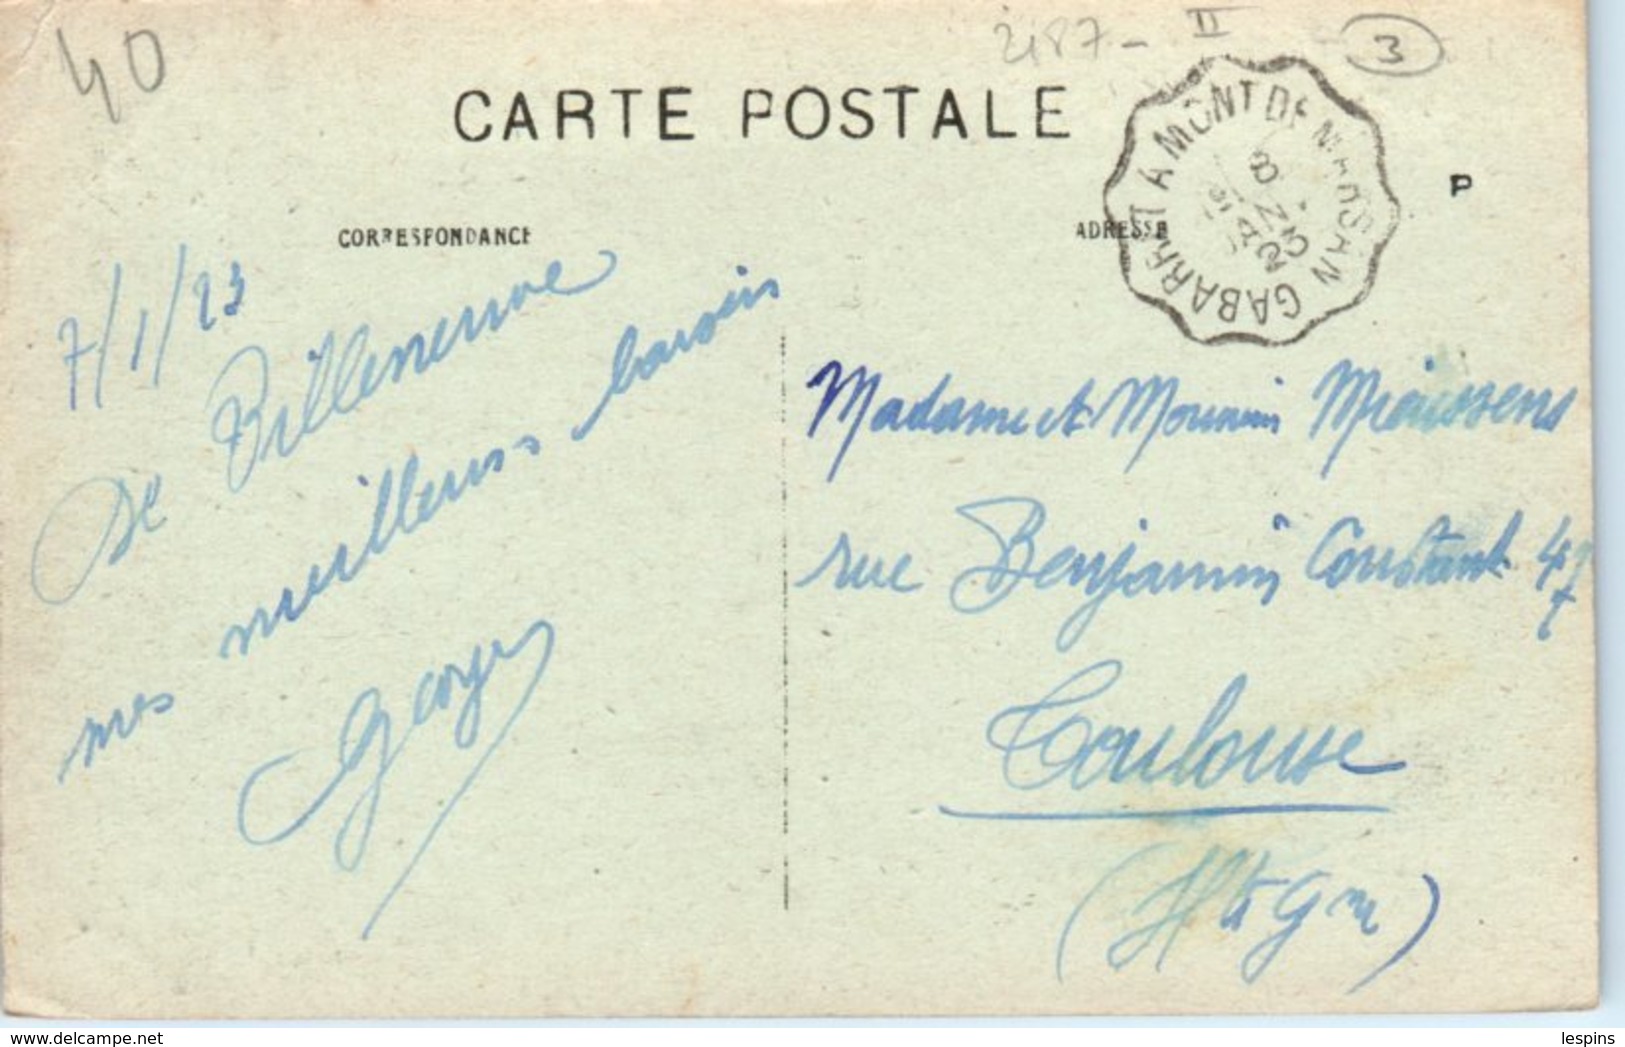 40
2187- II 3
CARTE POSTALE
CORRESPONDANCE
ADRESSE
P
GABARRET A MONT DE MARSAN
8
23
7/1/23
De Villeneuve
mes meilleurs baisers
Georges
Madame et Monsieur
rue Benjamin Constant 47
Toulouse
(Hte Gne)
delcampe.net
lespins